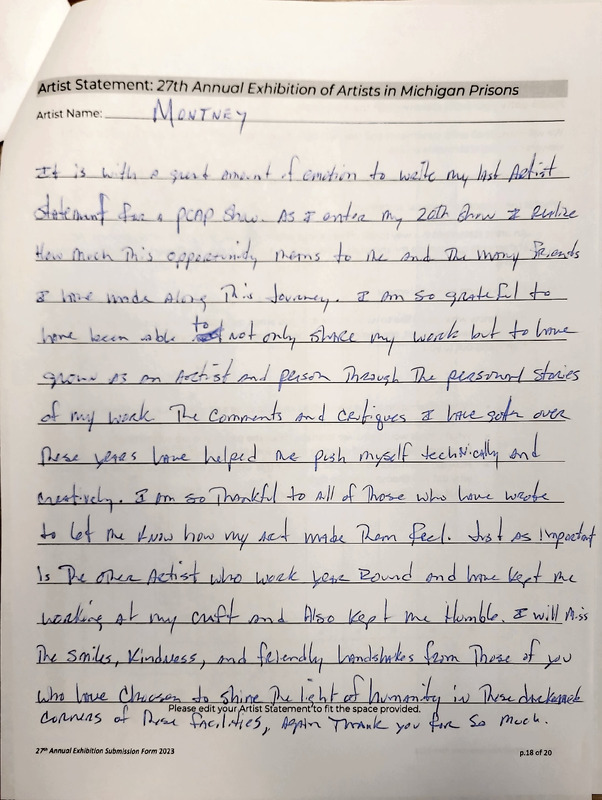 Artist Statement: 27th Annual Exhibition of Artists in Michigan Prisons
Artist Name: MONTNEY
It is with a great amount of emotion to write my last Artist
statement for a PCAP Show. As I enter my 20th Show I Realize
How Much This opportunity means to me and The many friends
I have made Along This Journey. I am so grateful to
have been able to not only share my work but to have
grown as an Artist and person Through The personal stories
of my work. The Comments and critiques I have gotten over
These years have helped me push myself technically and
creatively. I am so Thankful to all of Those who have wrote
to let me know how my art made Them feel. Just as important
Is The other Artist who work year Round and have kept me
working at my craft and Also kept me Humble. I will Miss
The smiles, Kindness, and friendly handshakes from Those of you
who have Choosen to shine The light of humanity in These
Please edit your Artist Statement to fit the space provided.
corners of These facilities, Again Thank you for so much.
27th Annual Exhibition Submission Form 2023
p.18 of 20